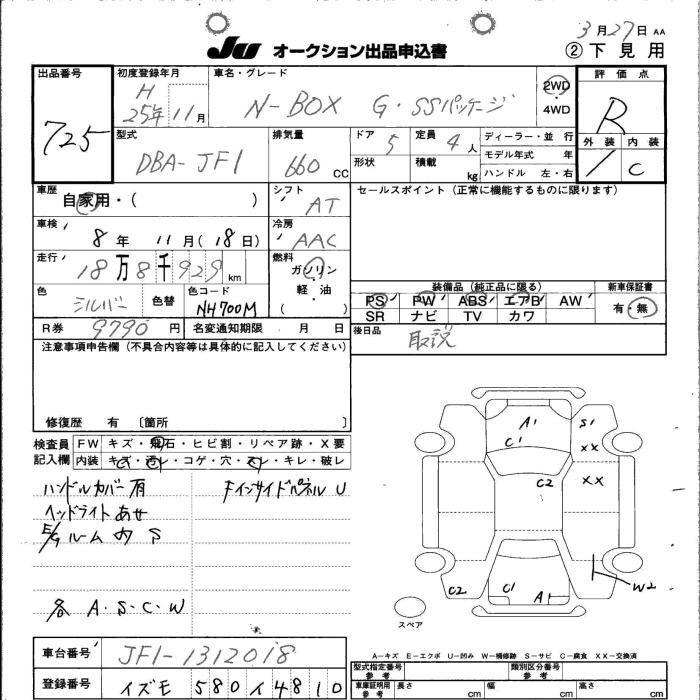 3月27日 AA
JU オークション出品申込書 ②下見用
出品番号 初度登録年月 車名・グレード 評価点
725 H 25年11月 N-BOX G・SSパッケージ 2WD・4WD R
外装 内装
/ C
型式 排気量 ドア 定員 ディーラー・並行
DBA-JF1 660cc 5 4人 モデル年式 年
形状 積載 kg ハンドル 左・右
車歴 自家用・( ) シフト AT セールスポイント(正常に機能するものに限ります)
車検 8年11月(18日) 冷房 AAC
走行 18万8千929km 燃料 ガソリン・軽・油 ( 装備品(純正品に限る) 新車保証書
色 シルバー 色替 色コード NH700M PS PW ABS エアB AW 有・無
SR ナビ TV カワ
R券 9790円 名変通知期限 月 日 後日品 取説
注意事項申告欄(不具合内容等は具体的に記入してください)
修復歴 有 〔箇所 〕
検査員記入欄 FW キズ・飛石・ヒビ割・リペア跡・X要
内装 キズ・汚レ・コゲ・穴・スレ・キレ・破レ
ハンドルカバー有 FインサイドパネルU
ヘッドライトあせ
E/gルーム内 S
各 A.S.C.W
A1 S1
C1 XX
C2 XX
C2 C1 A1 W2
スペア
A-キズ E-エクボ U-凹み W-補修跡 S-サビ C-腐食 XX-交換済
車台番号 JF1-1312018 型式指定番号 参考 類別区分番号 参考
登録番号 イズモ 580 イ 4810 車庫証明用 参考 長さ cm 幅 cm 高さ cm